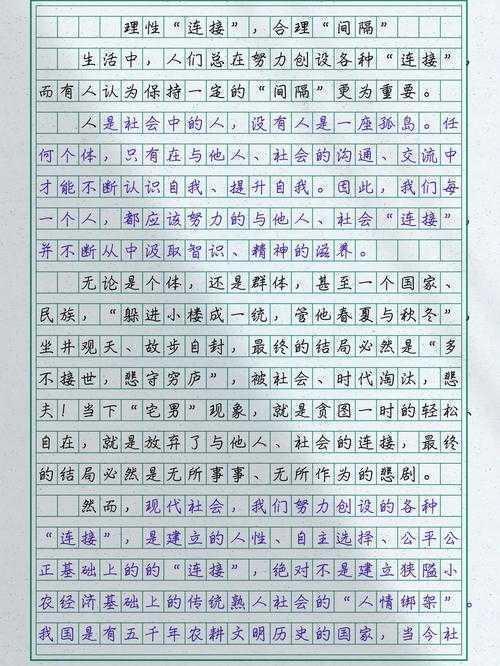 理性“连接”，合理“间隔”
生活中，人们总在努力创设各种“连接”，
而有人认为保持一定的“间隔”更为重要。
人是社会中的人，没有人是一座孤岛。任
何个体，只有在与他人、社会的沟通、交流中
才能不断认识自我、提升自我。因此，我们每
一个人，都应该努力的与他人、社会“连接”
并不断从中汲取智识、精神的滋养。
无论是个体，还是群体，甚至一个国家、
民族，“躲进小楼成一统，管他春夏与秋冬”
坐井观天、故步自封，最终的结局必然是“多
不接世，悲守穷庐”，被社会、时代淘汰，悲
夫！当下“宅男”现象，就是贪图一时的轻松、
自在，就是放弃了与他人、社会的连接，最终
的结局必然是无所事事、无所作为的悲剧。
然而，现代社会，我们努力创设的各种
“连接”，是建立的人性、自主选择、公平公
正基础上的的“连接”，绝对不是建立狭隘小
农经济基础上的传统熟人社会的“人情绑架”。
我国是有五千年农耕文明历史的国家，当今社